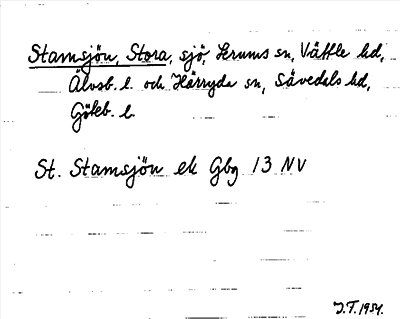 Stamsjön, Stora, sjö, Lerums sn, Vättle hd,
Älvsb. l. och Härryda sn, Sävedals hd,
Göteb. l.
St. Stamsjön ek Gbg 13 NV
J.F. 1954.